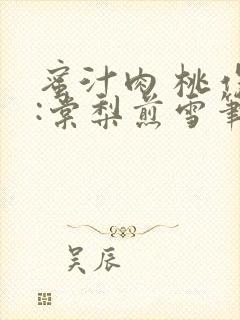 蜜汁肉桃作
:棠梨煎雪笔
吴辰